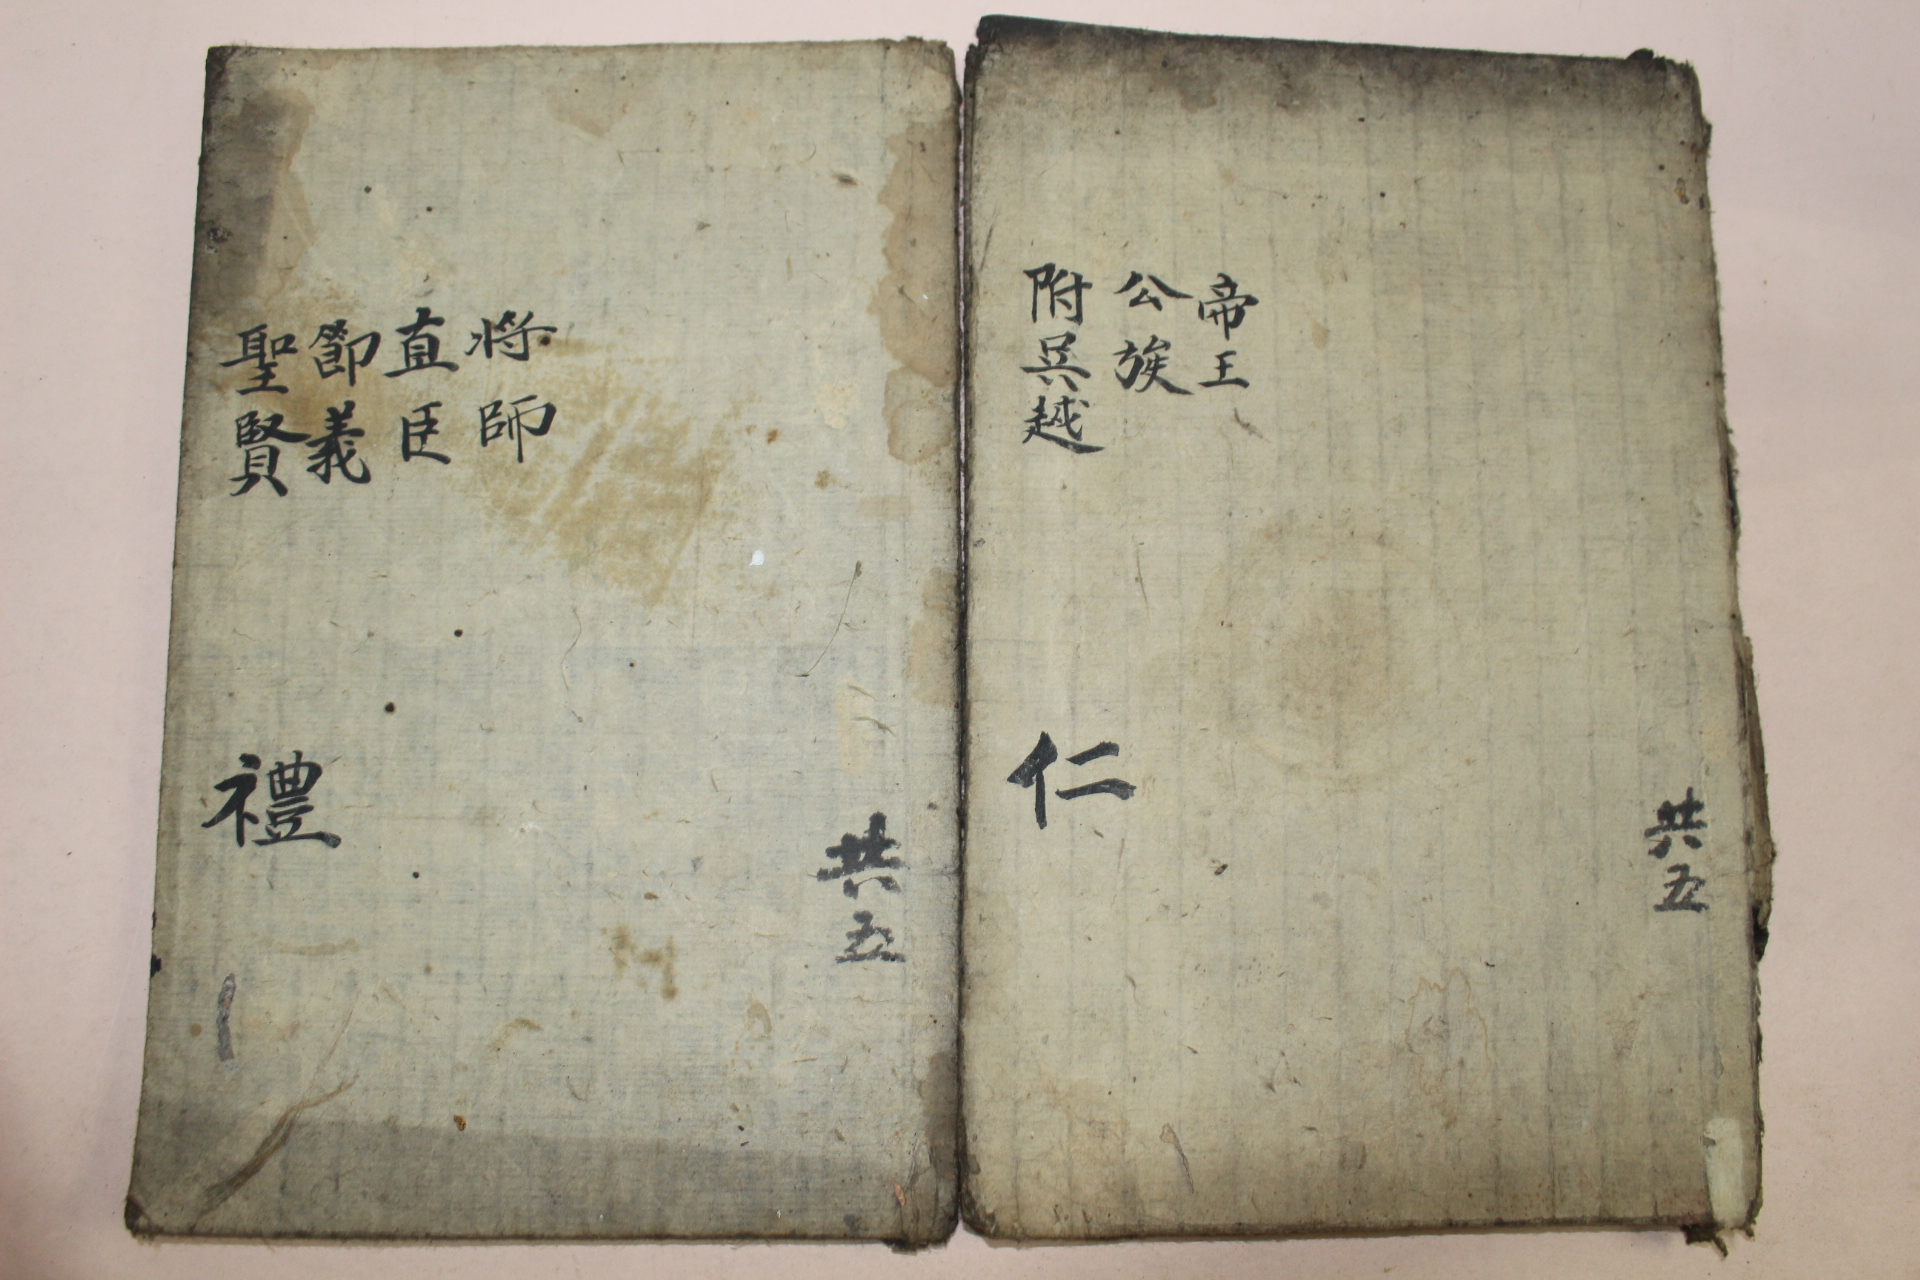 帝王
公族
附吳越
仁
共五
將師
直臣
節義
聖賢
禮
共五